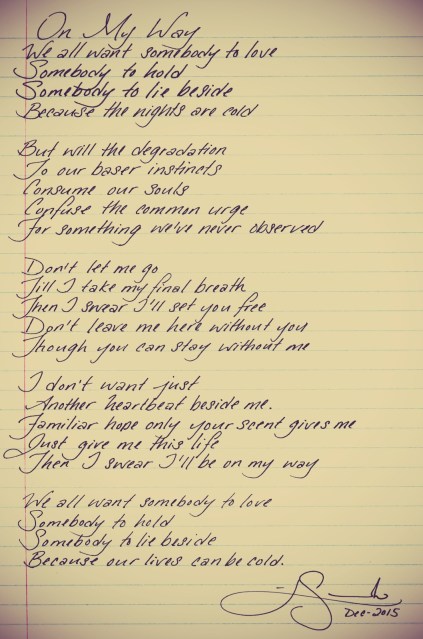 On My Way
We all want somebody to love
Somebody to hold
Somebody to lie beside
Because the nights are cold
But will the degradation
To our baser instincts
Consume our souls
Confuse the common urge
For something we've never observed
Don't let me go
Till I take my final breath
Then I swear I'll set you free
Don't leave me here without you
Though you can stay without me
I don't want just
Another heartbeat beside me.
Familiar hope only your scent gives me
Just give me this life
Then I swear I'll be on my way
We all want somebody to love
Somebody to hold
Somebody to lie beside
Because our lives can be cold.
Dec-2015